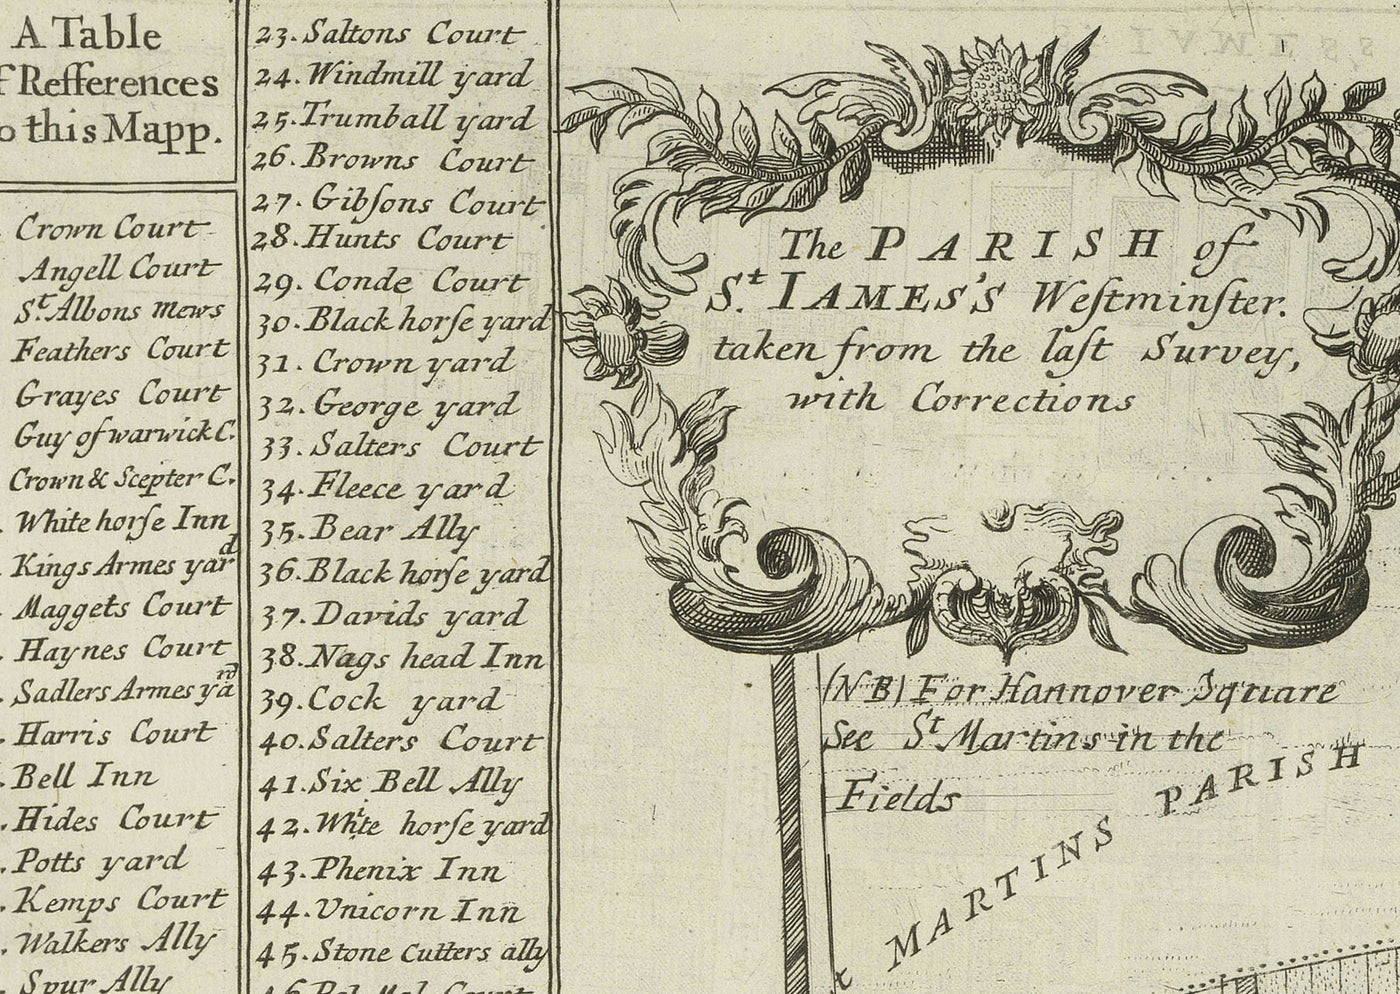 A Table
f Refferences
o this Mapp.
Crown Court
Angell Court
St. Albons mews
Feathers Court
Grayes Court
Guy of warwick C.
Crown & Scepter C.
White horſe Inn
Kings Armes yard
Maggets Court
Haynes Court
Sadlers Armes yard
Harris Court
Bell Inn
Hides Court
Potts yard
Kemps Court
Walkers Ally
Spur Ally
23. Saltons Court
24. Windmill yard
25. Trumball yard
26. Browns Court
27. Gibſons Court
28. Hunts Court
29. Conde Court
30. Black horſe yard
31. Crown yard
32. George yard
33. Salters Court
34. Fleece yard
35. Bear Ally
36. Black horſe yard
37. Davids yard
38. Nags head Inn
39. Cock yard
40. Salters Court
41. Six Bell Ally
42. White horſe yard
43. Phenix Inn
44. Unicorn Inn
45. Stone Cutters ally
46. Pel Mel Court
The PARISH of
St. IAMES'S Weſtminſter.
taken from the laſt Survey,
with Corrections
(NB) For Hannover Square
See St Martins in the
Fields
t MARTINS PARISH